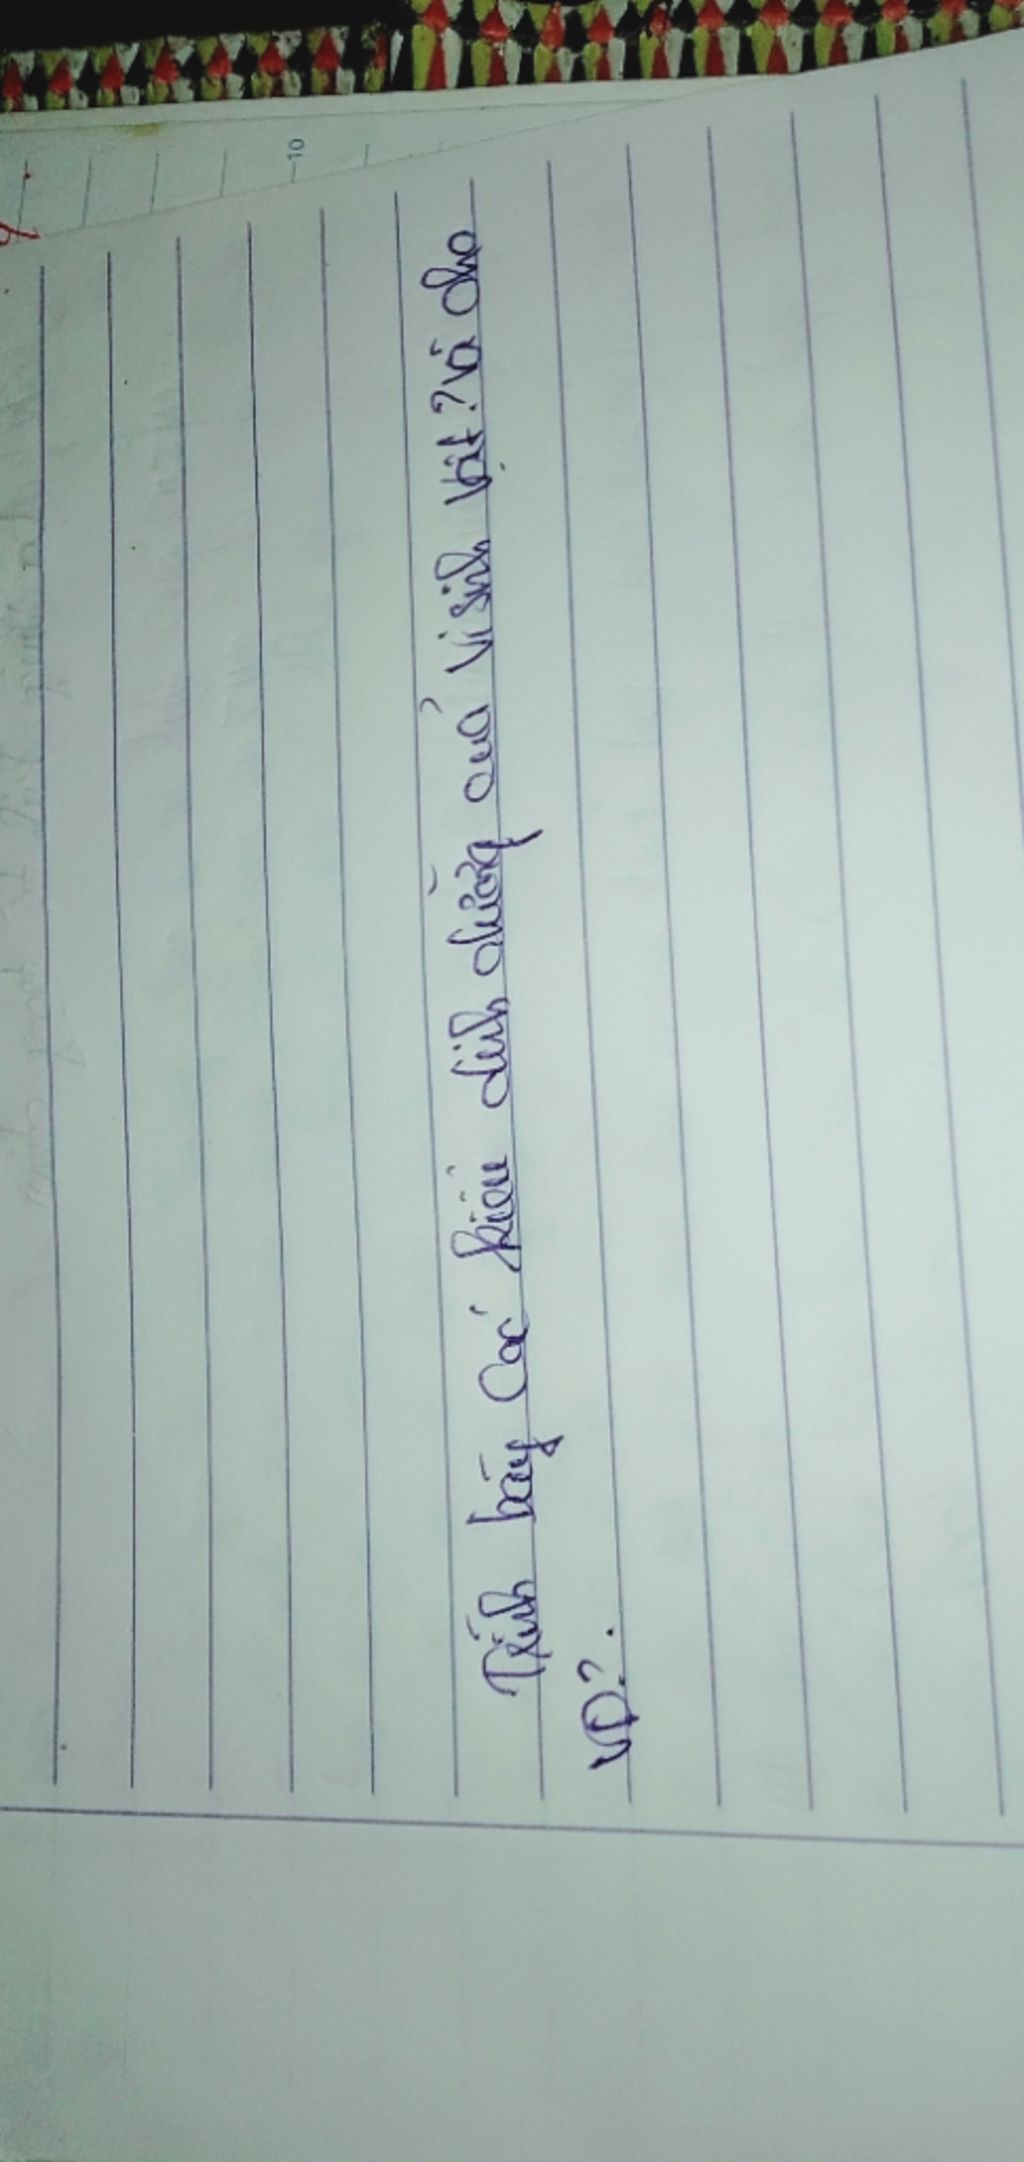 Trình bày Các kiểu dinh dưỡng của vi sinh vật? Và cho
VD?.
10